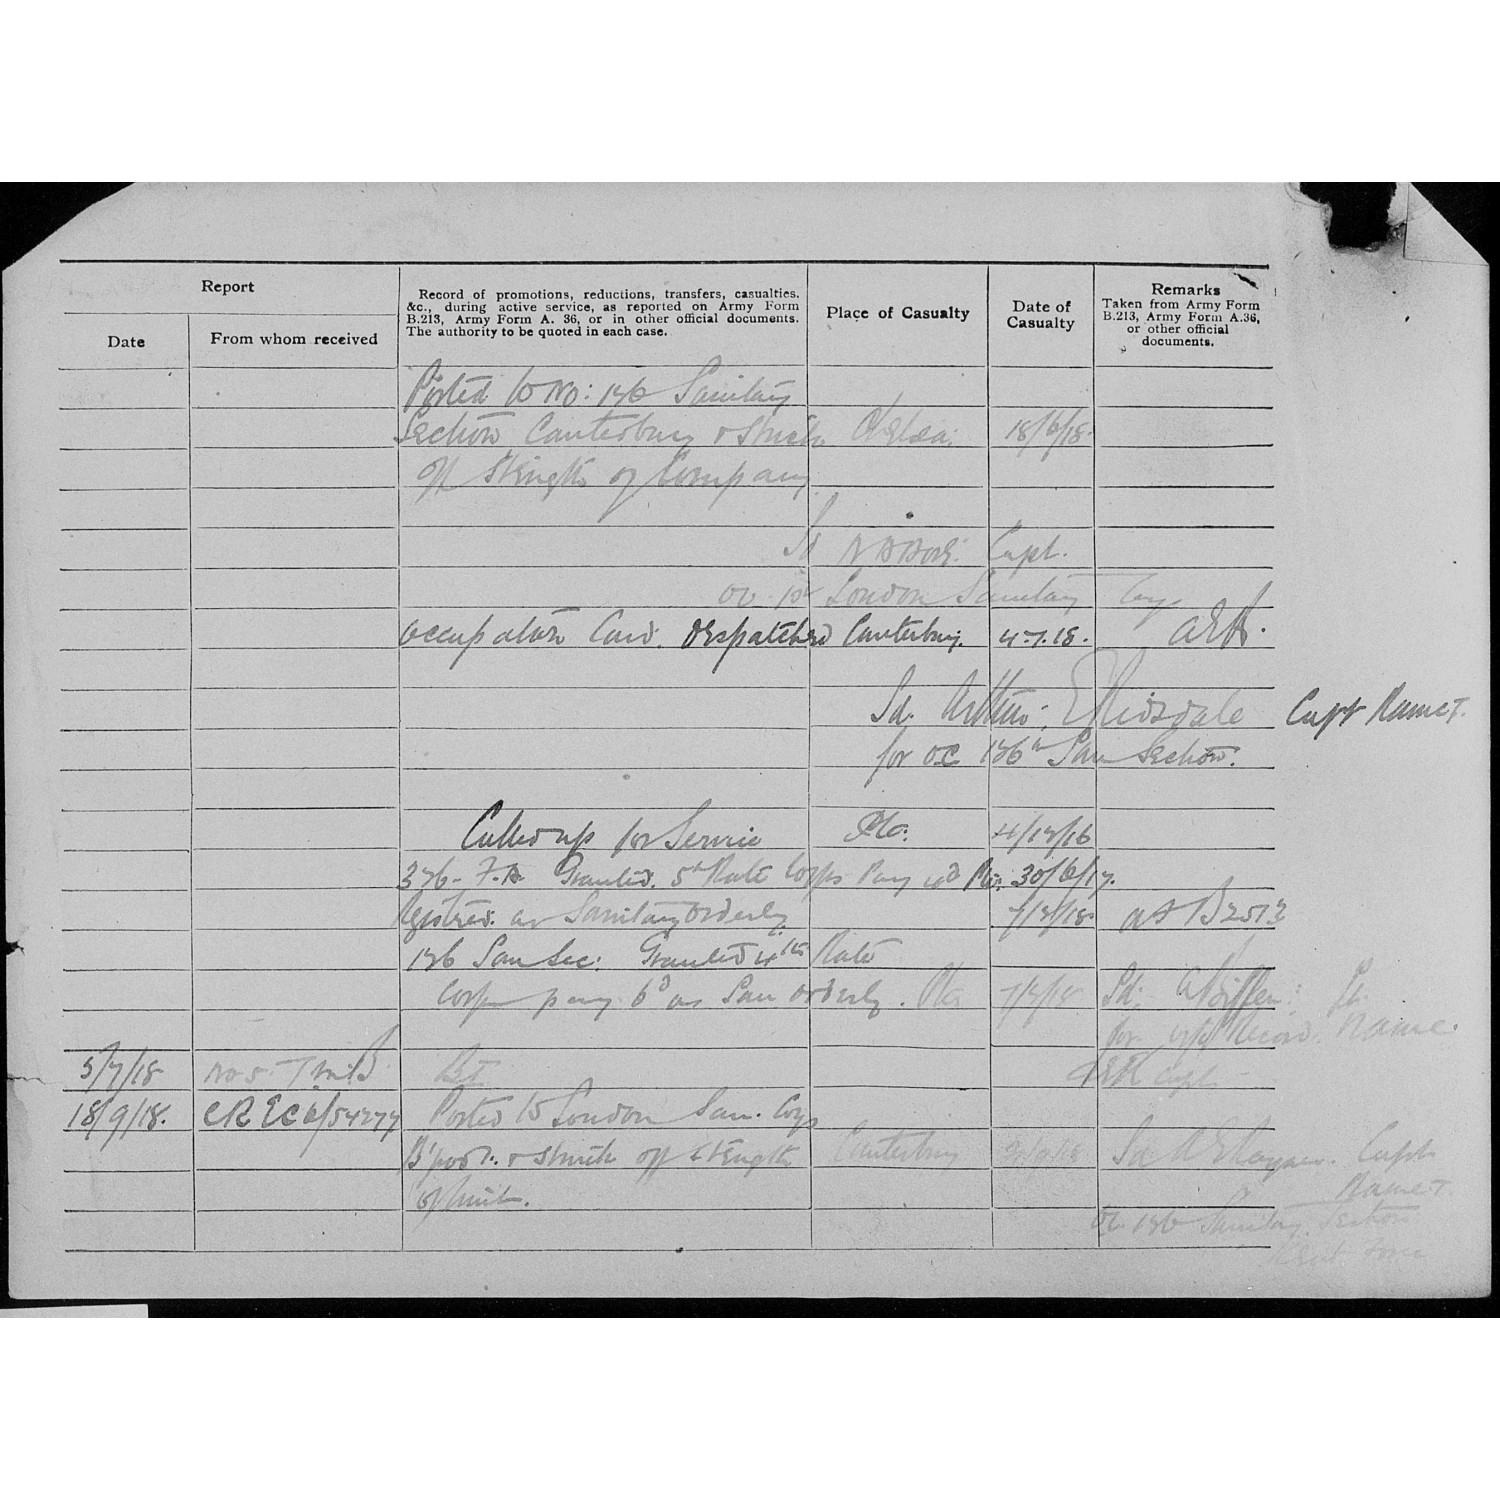 Report
Date
From whom received
Record of promotions, reductions, transfers, casualties,
&c., during active service, as reported on Army Form
B.213, Army Form A. 36, or in other official documents.
The authority to be quoted in each case.
Place of Casualty
Date of
Casualty
Remarks
Taken from Army Form
B.213, Army Form A.36,
or other official
documents.
Posted to No: 126 Sanitary
Section Canterbury & struck Chelsea: 18/6/18.
off strength of Company
Sd Capt.
OC 1st London Sanitary Coy.
Occupation Card. Despatched Canterbury. 4.7.18. AER.
Sd. Arthur E Ridsdale Capt RAMCT.
for OC 126th San Section.
Called up for Service Pte. 4/12/16
Granted. 5th Rate Corps Pay 4d Pte. 30/6/17.
Registered. as Sanitary Orderly.
126 San Sec: Granted 4th Rate
Corps pay 6d as San Orderly. Pte
Sd: Lt.
for Record. RAMC.
5/7/18 No 5.
AER Capt
18/9/18. CREC6/54277 Posted to London San. Coy
B'pool. & struck off strength Canterbury Sd Capt
of unit. RAMCT
OC 126 Sanitary Section
Kent Force